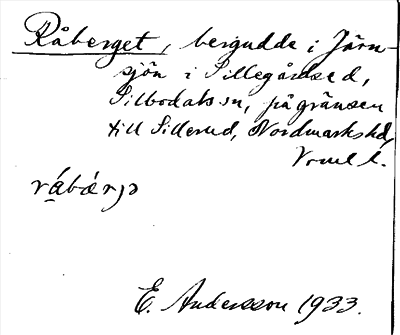 Råberget, bergudde i Järn-
sjön i Sillegårdsed,
Silbodals sn, på gränsen
till Sillerud, Nordmarks hd,
Vrml l.
råbärjə
E. Andersson 1933.